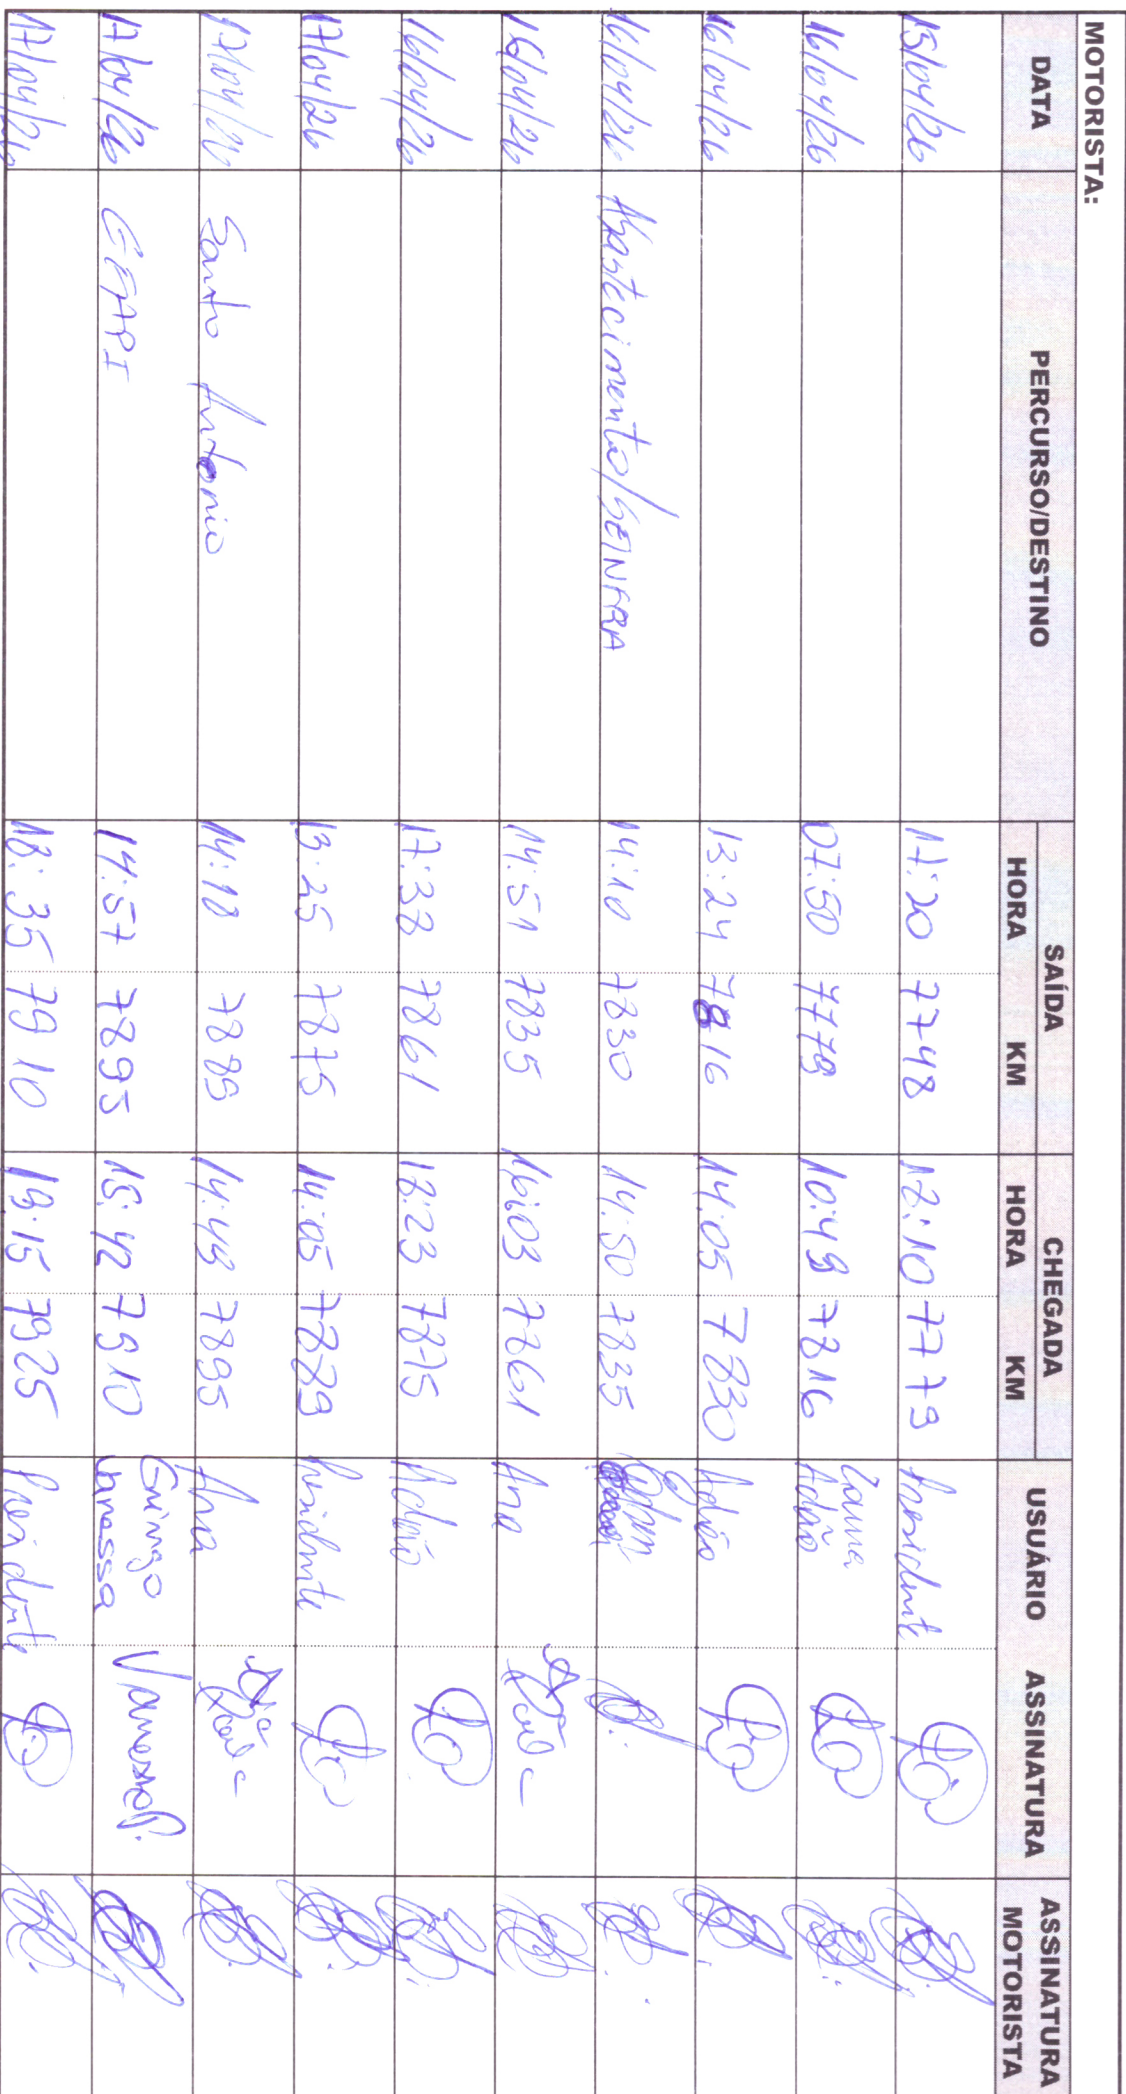 MOTORISTA:
DATA PERCURSO/DESTINO SAÍDA CHEGADA USUÁRIO ASSINATURA ASSINATURA MOTORISTA
HORA KM HORA KM
15/04/26 17:20 7748 18:10 7779 Presidente
16/04/26 07:50 7779 10:49 7816 Adão
16/04/26 13:24 7816 14:05 7830 Adão
16/04/26 Abastecimento/SEINFRA 14:10 7830 14:50 7835
16/04/26 14:51 7835 16:03 7861 Ana
16/04/26 17:38 7861 18:23 7875 Adão
17/04/26 13:25 7875 14:05 7889 Presidente
17/04/26 Santo Antonio 14:10 7889 14:49 7895 Ana
17/04/26 CEAPI 14:57 7895 15:42 7910 Vanessa
17/04/26 18:35 7910 19:15 7925 Presidente